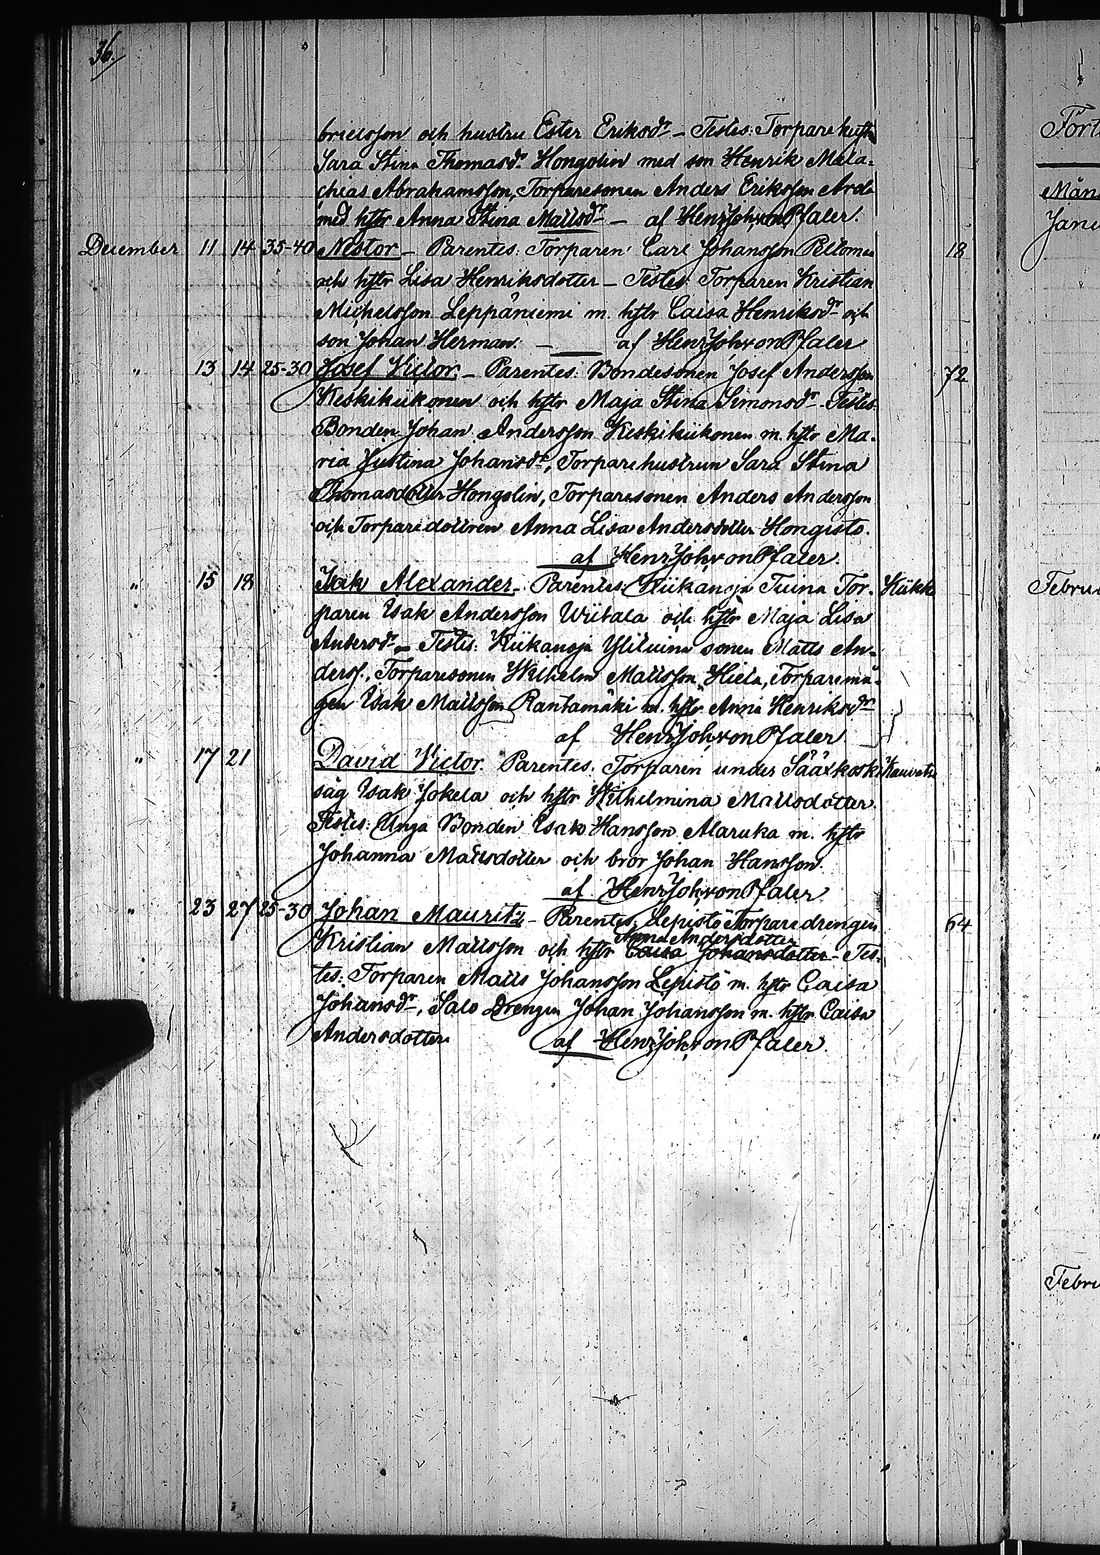 36.
brielsson och hustru Ester Eriksdr – Testes: Torparehustr
Sara Stina Thomasdr Hongolin med son Henrik Mala-
chias Abrahamsson, Torparesonen Anders Eriksson Arola
med hstr Anna Stina Mattsdr – af Henr Joh von Pfaler.
December 11 14 35-40 Nestor – Parentes: Torparen Carl Johansson Peltomen 18
och hstr Lisa Henriksdotter – Testes: Torparen Kristian
Michelsson Leppäniemi m. hstr Caisa Henriksdr och
son Johan Herman. – af Henr Joh von Pfaler
" 13 14 25-30 Josef Victor. – Parentes: Bondesonen Josef Andersson 72
Keskikiikonen och hstr Maja Stina Simonsdr – Testes
Bonden Johan Andersson Keskikiikonen m. hstr Ma-
ria Justina Johansdr, Torparehustrun Sara Stina
Thomasdotter Hongolin, Torparesonen Anders Andersson
och Torparedottren Anna Lisa Andersdotter Hongisto.
af Henr Joh von Pfaler.
" 15 18 Isak Alexander – Parentes: Kiikanoja Tuina Tor- Kiikka
paren Isak Andersson Wiitala och hstr Maja Lisa
Antersdr – Testes: Kiikanoja Ylituina sonen Matts An-
derss., Torparesonen Wilhelm Mattsson Hiela, Torparemå-
gen Isak Mattsson Rantamäki m. hstr Anna Henriksdr
af Henr Joh von Pfaler
" 17 21 David Victor. Parentes: Torparen under Sääxkoski Kauvatsa
såg Isak Jokela och hstr Wilhelmina Mattsdotter
Testes: Unga Bonden Isak Hansson Maruka m. hstr
Johanna Mattsdotter och bror Johan Hansson.
af Henr Joh von Pfaler
" 23 27 25-30 Johan Mauritz – Parentes: Lepistö Torparedrengen 64
Anna Andersdotter
Kristian Mattsson och hstr Caisa Johansdotter – Tes-
tes: Torparen Matts Johansson Lepistö m. hstr Caisa
Johansdr, Salo Drengen Johan Johansson m. hstr Caisa
Andersdotter af Henr Joh von Pfaler.
Mån
Febru
Febru